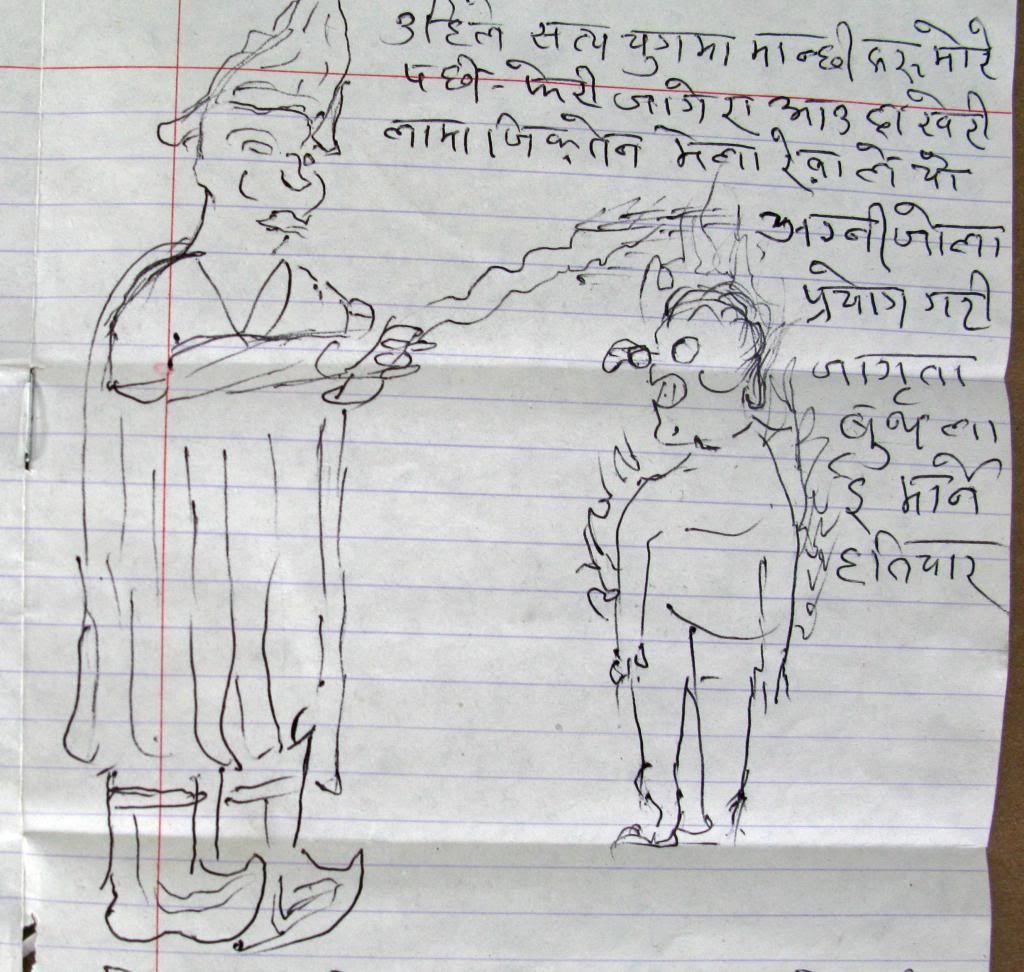 उहिले सत्य युगमा मान्छी हरू मोरे
पछी- फेरी जागेरा आउदा खेरी
लामा जिक्तेन मेला ले यो
अग्नीजोला
प्रयोग गरी
जागृता
बुथ ला
इ मार्ने
हतियार